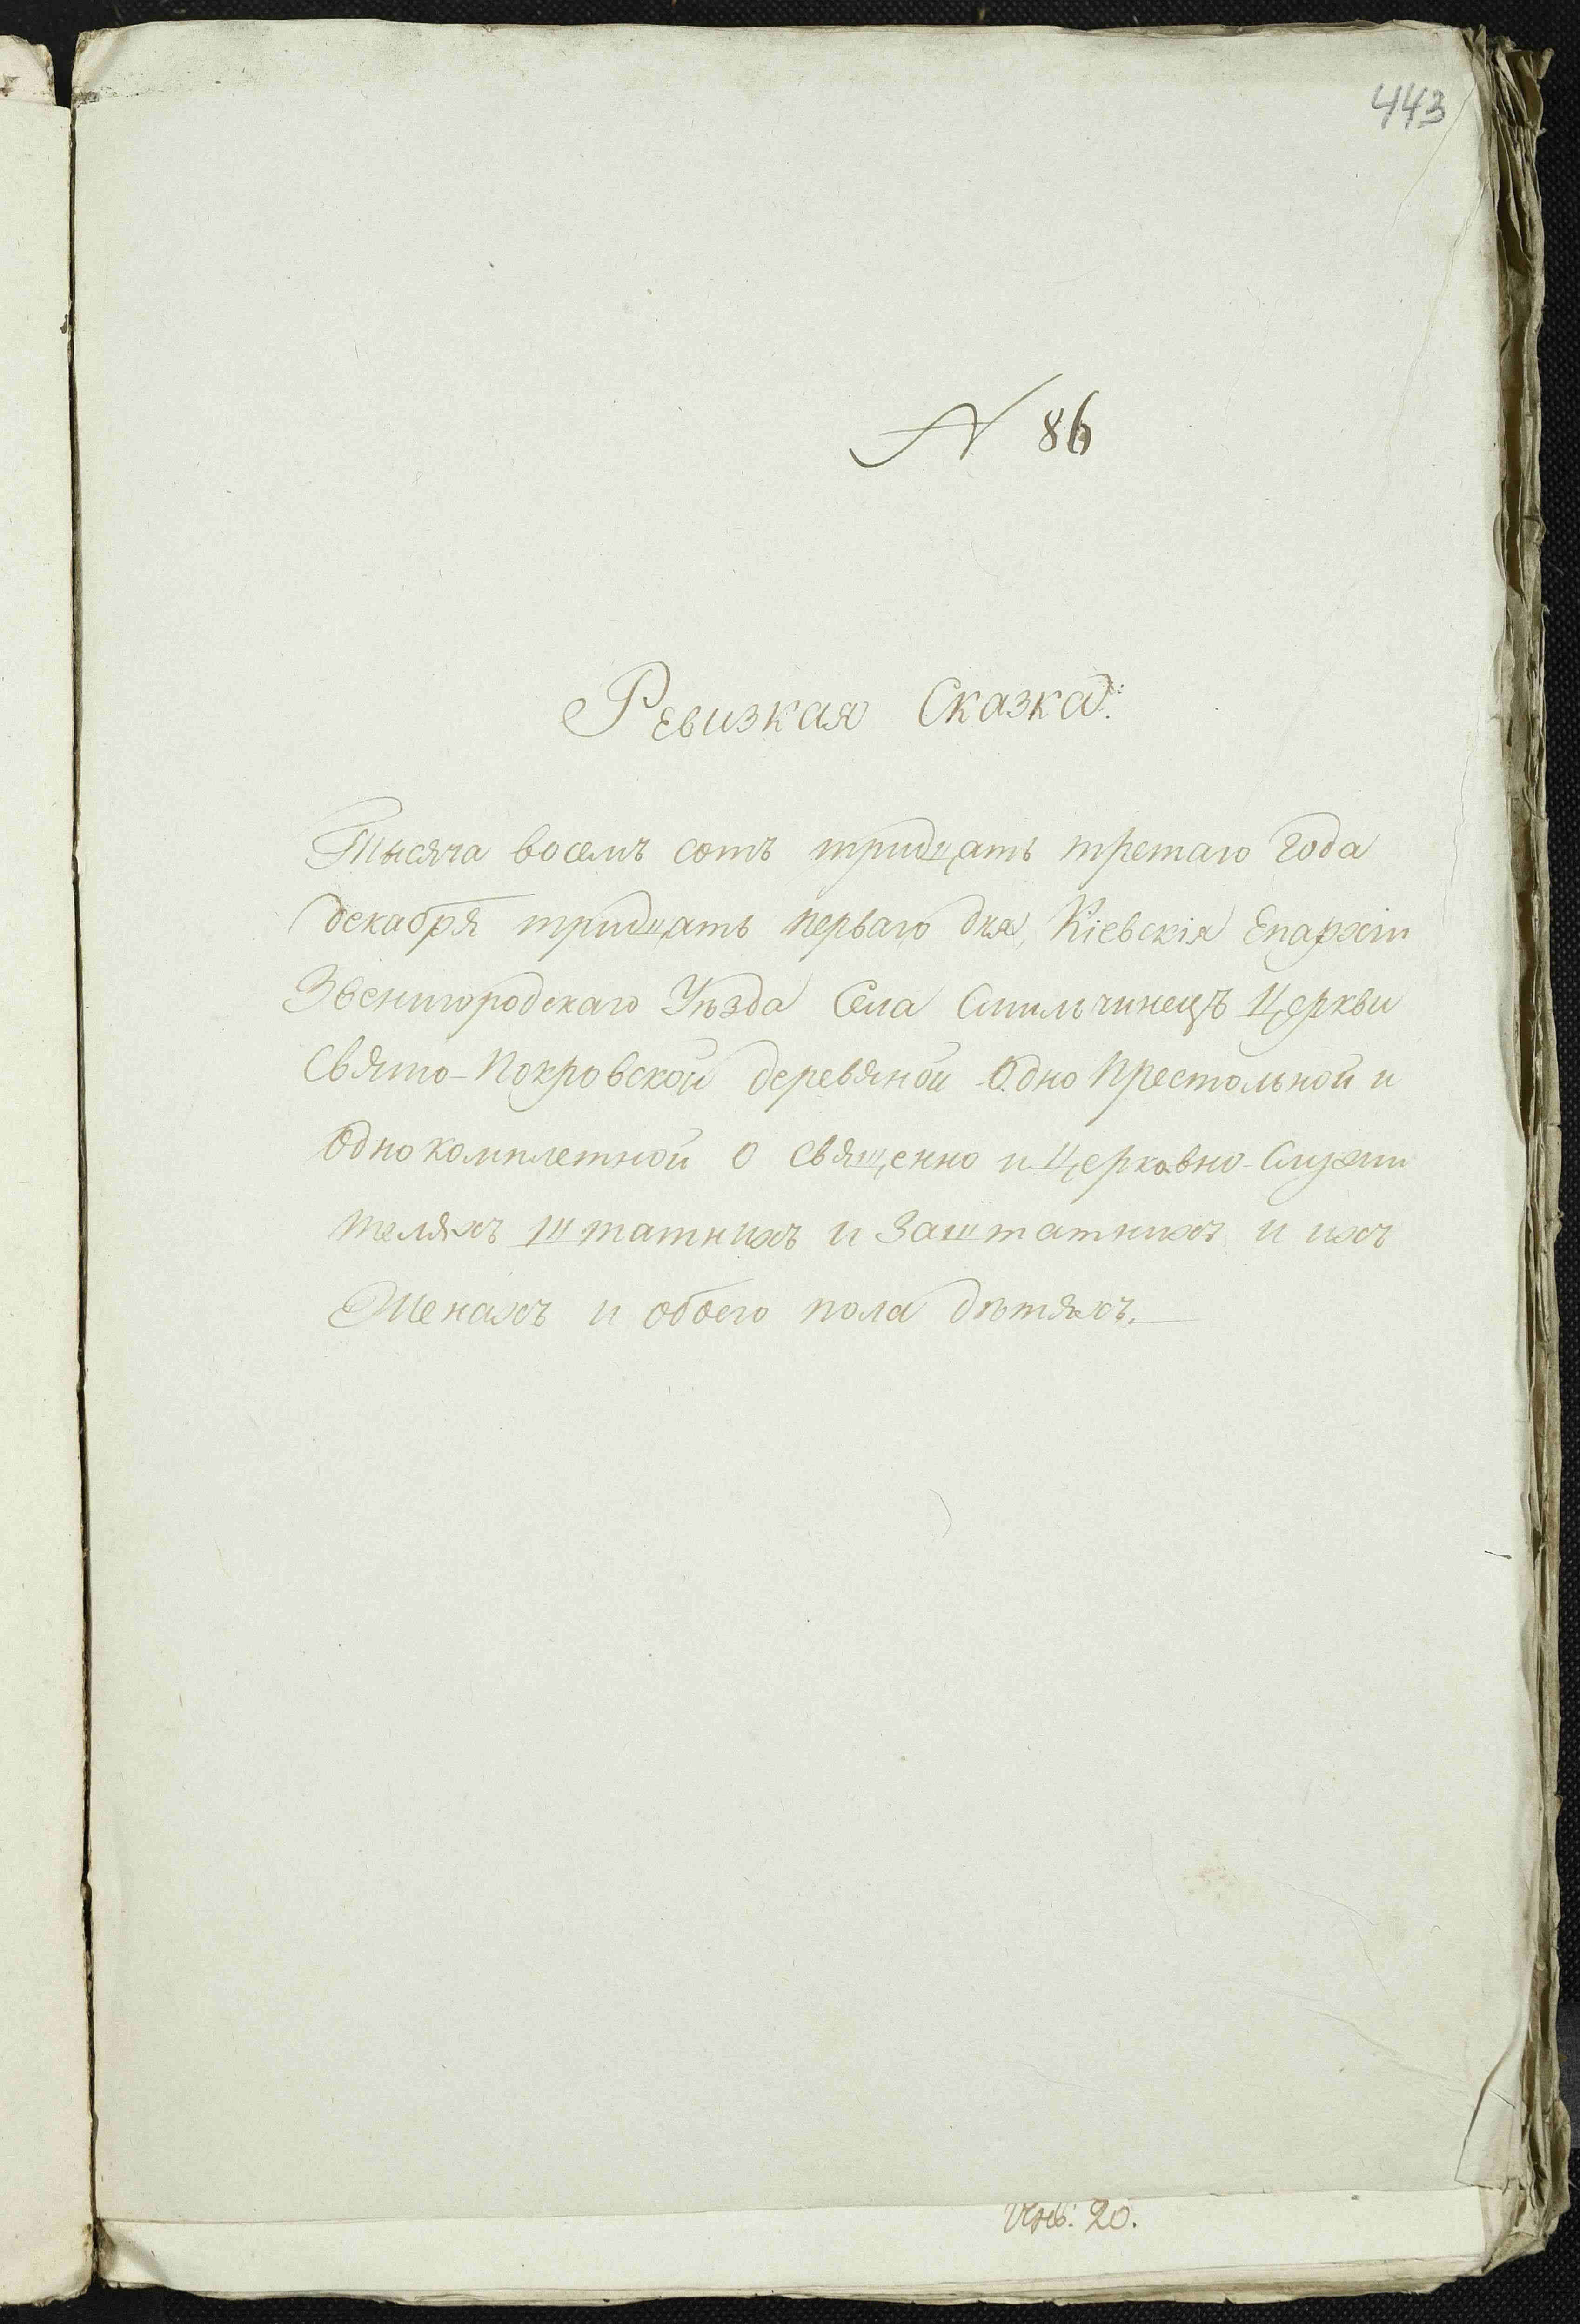 443
N 86
Ревизкая Сказка:
Тысяча восемъ сотъ тридцать третаго года
декабря тридцать перваго дня, Кіевскія Епархіи
Звенигородскаго Уѣзда Села Смильчинецъ Церкви
Свято-Покровской деревяной Одно Престольной и
Однокомплетной о Священно и Церковно-Служи
теляхъ Штатнихъ и Заштатнихъ и ихъ
Женахъ и обоего пола дѣтяхъ.—
20.